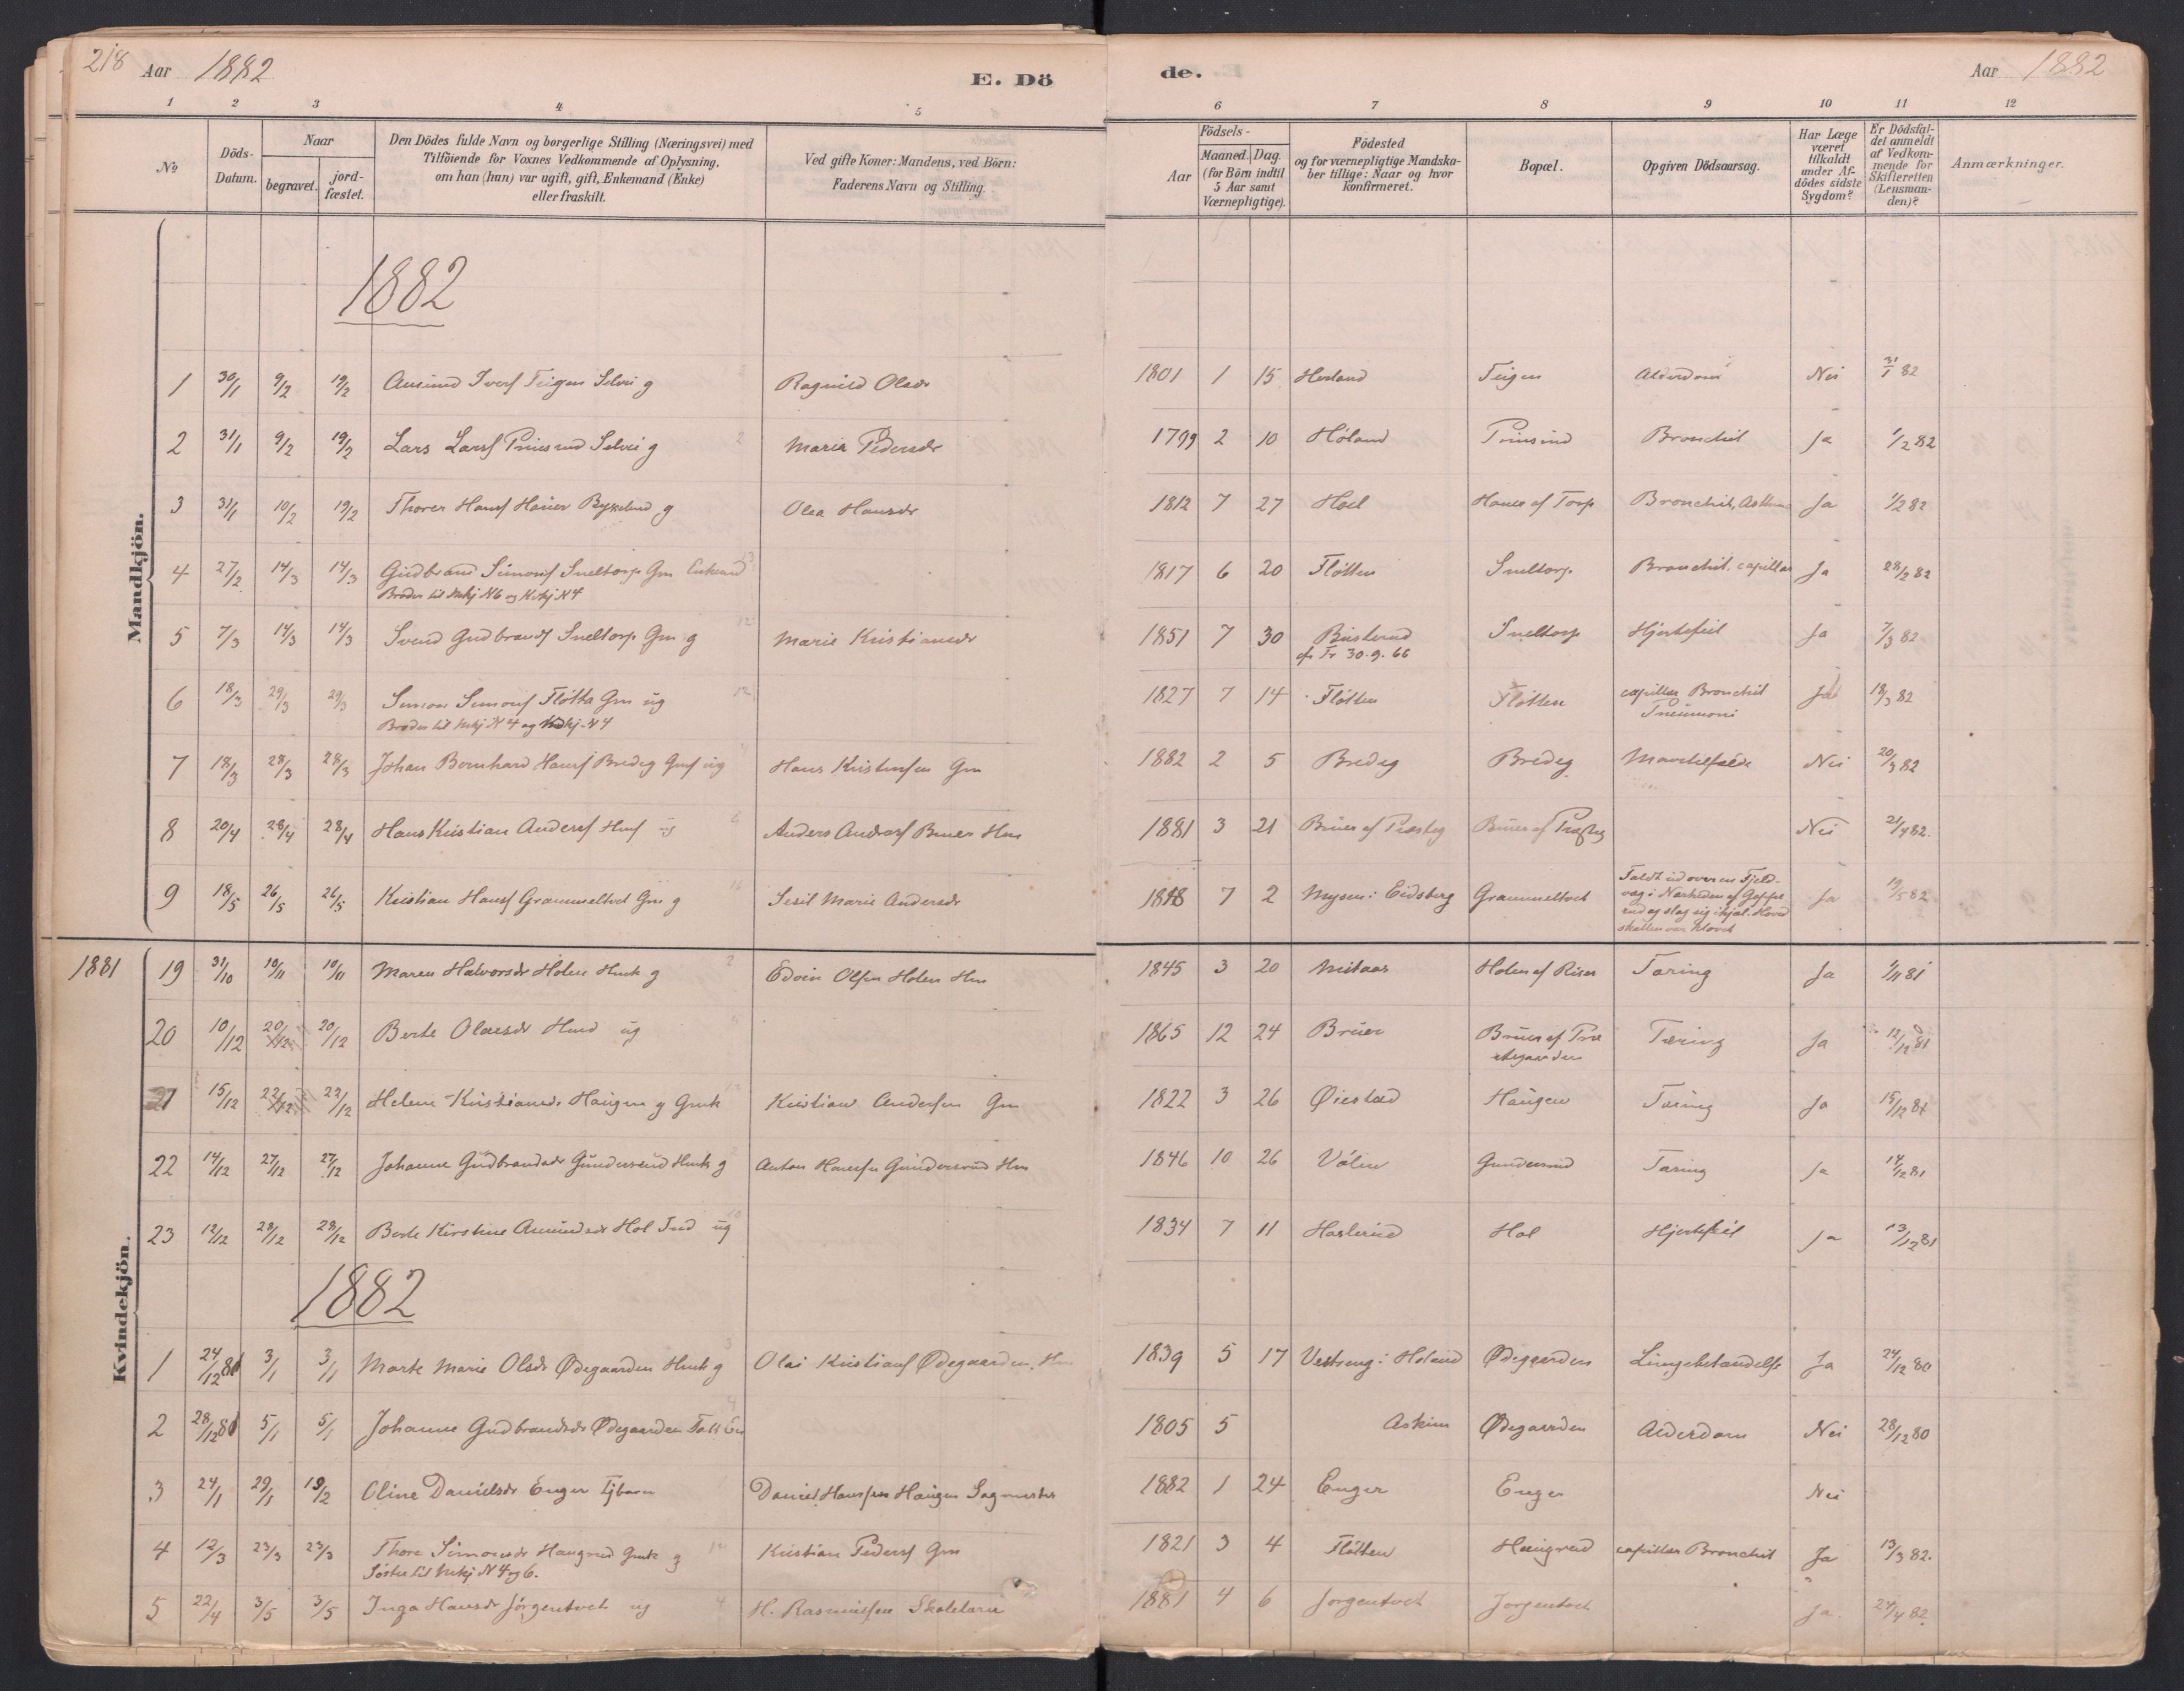 218 Aar 1882 E. Dö de. Aar 1882
1 2 3 4 5 6 7 8 9 10 11 12
No
Döds-Datum.
Naar
begravet.
jord-fæstet.
Den Dödes fulde Navn og borgerlige Stilling (Næringsvei) med
Tilföiende for Voxnes Vedkommende af Oplysning,
om han (hun) var ugift, gift, Enkemand (Enke)
eller fraskilt.
Ved gifte Koner: Mandens, ved Börn:
Faderens Navn og Stilling.
Födsels-
Aar
Maaned. Dag.
(for Börn indtil
5 Aar samt
Værnepligtige).
Födested
og for værnepligtige Mandska-
ber tillige: Naar og hvor
konfirmeret.
Bopæl.
Opgiven Dödsaarsag.
Har Læge
været
tilkaldt
under Af-
dödes sidste
Sygdom?
Er Dödsfal-
det anmeldt
af Vedkom-
mende for
Skifteretten
(Lensman-
den)?
Anmærkninger.
Mandkjön.
1882
1 30/1 9/2 19/2 Amund Iversf Teigen Selvei g Ragnild Olsdr 1801 1 15 Herland Teigen Alderdom Nei 31/1 82
2 31/1 9/2 19/2 Lars Larsf Prinsrud Selvei g Maria Pedersdr 1799 2 10 Höland Prinsrud Bronchit Ja 1/2 82
3 31/1 10/2 19/2 Thorer Hansf Hauer g Olea Hansdr 1812 7 27 Hoel Hauer af Torp Bronchit, Asthma Ja 1/2 82
4 27/2 14/3 14/3 Gudbrand Simonsf Sneltorp Gm Enkem 1817 6 20 Flötten Sneltorp Bronchit. capillar Ja 28/2 82
Broder til Mkj N 6 og Kvkj N 4
5 7/3 14/3 14/3 Svend Gudbrandsf Sneltorp Gm g Marie Kristiansdr 1851 7 30 Busterud Sneltorp Hjertefeil Ja 7/3 82
cf. Tr 30.9.66
6 18/3 29/3 29/3 Simon Simonsf Flötta Gm ug 1827 7 14 Flötten Flötten capillar Bronchit Ja 18/3 82
Broder til Mkj N 4 og Kvkj N 4 Pneumoni
7 18/3 28/3 28/3 Johan Bernhard Hansf Bredeg Gmf ug Hans Kristensen Gm 1882 2 5 Bredeg Bredeg Nei 20/3 82
8 20/4 28/4 28/4 Hans Kristian Andersf Hmf ug Anders Andersf Bruer Hm 1881 3 21 Bruer af Præsteg Bruer af Præsteg Nei 21/4 82.
9 18/5 26/5 26/5 Kristian Hansf Grammeltvet Gm g Sesil Marie Andersdr 1848 7 2 Mysen i Eidsberg Grammeltvet Faldt ud over en Fjeld-
væg i Nærheden af
rud og slog sig ihjel. Hoved
skallen var klovet Ja 19/5 82
Kvindekjön.
1881 19 31/10 10/11 10/11 Maren Halvorsdr Holen Hmk g Edvin Olsen Holen Hm 1845 3 20 Holen af Riser Tæring Ja 1/11 81
20 10/12 20/12 20/12 Berte Olausdr Hmd ug 1865 12 24 Bruer Bruer af Præ Tæring Ja 12/12 81
stegaarden
21 15/12 22/12 22/12 Helene Kristiansdr Haugen g Gmk Kristian Andersen Gm 1822 3 26 Øiestad Haugen Tæring Ja 15/12 81
22 14/12 27/12 27/12 Johanne Gudbrandsdr Gundersrud Hmk g Anton Hansen Gundersrud Hm 1846 10 26 Välin Gundersrud Tæring Ja 14/12 81
23 12/12 28/12 28/12 Berte Kirstine Amundsdr Hol Ind ug 1834 7 11 Haslerud Hol Hjertefeil Ja 13/12 81
1882
1 24/12 81 3/1 3/1 Marte Marie Olsdr Ødegaarden Hmk g Olai Kristiansf Ødegaarden Hm 1839 5 17 Vestreng i Höland Ødegaarden Lungebetændelse Ja 24/12 80
2 28/12 81 5/1 5/1 Johanne Gudbrandsdr Ødegaarden Fatt Enk 1805 5 Askim Ødegaarden Alderdom Nei 28/12 80
3 24/1 29/1 19/2 Oline Danielsdr Enger Daniel Hansen Haugen Sagmester 1882 1 24 Enger Enger Nei
4 12/3 23/3 23/3 Thore Simonsdr Haugrud Gmk g Kristian Pedersf Gm 1821 3 4 Flötten Haugrud capillar Bronchit Ja 13/3 82.
Söster til Mkj N 4 og 6.
5 22/4 3/5 3/5 Inga Hansdr Jörgentvet ug H. Rasmussen Skolelærer 1881 4 6 Jorgentvet Jorgentvet Ja 24/4 82